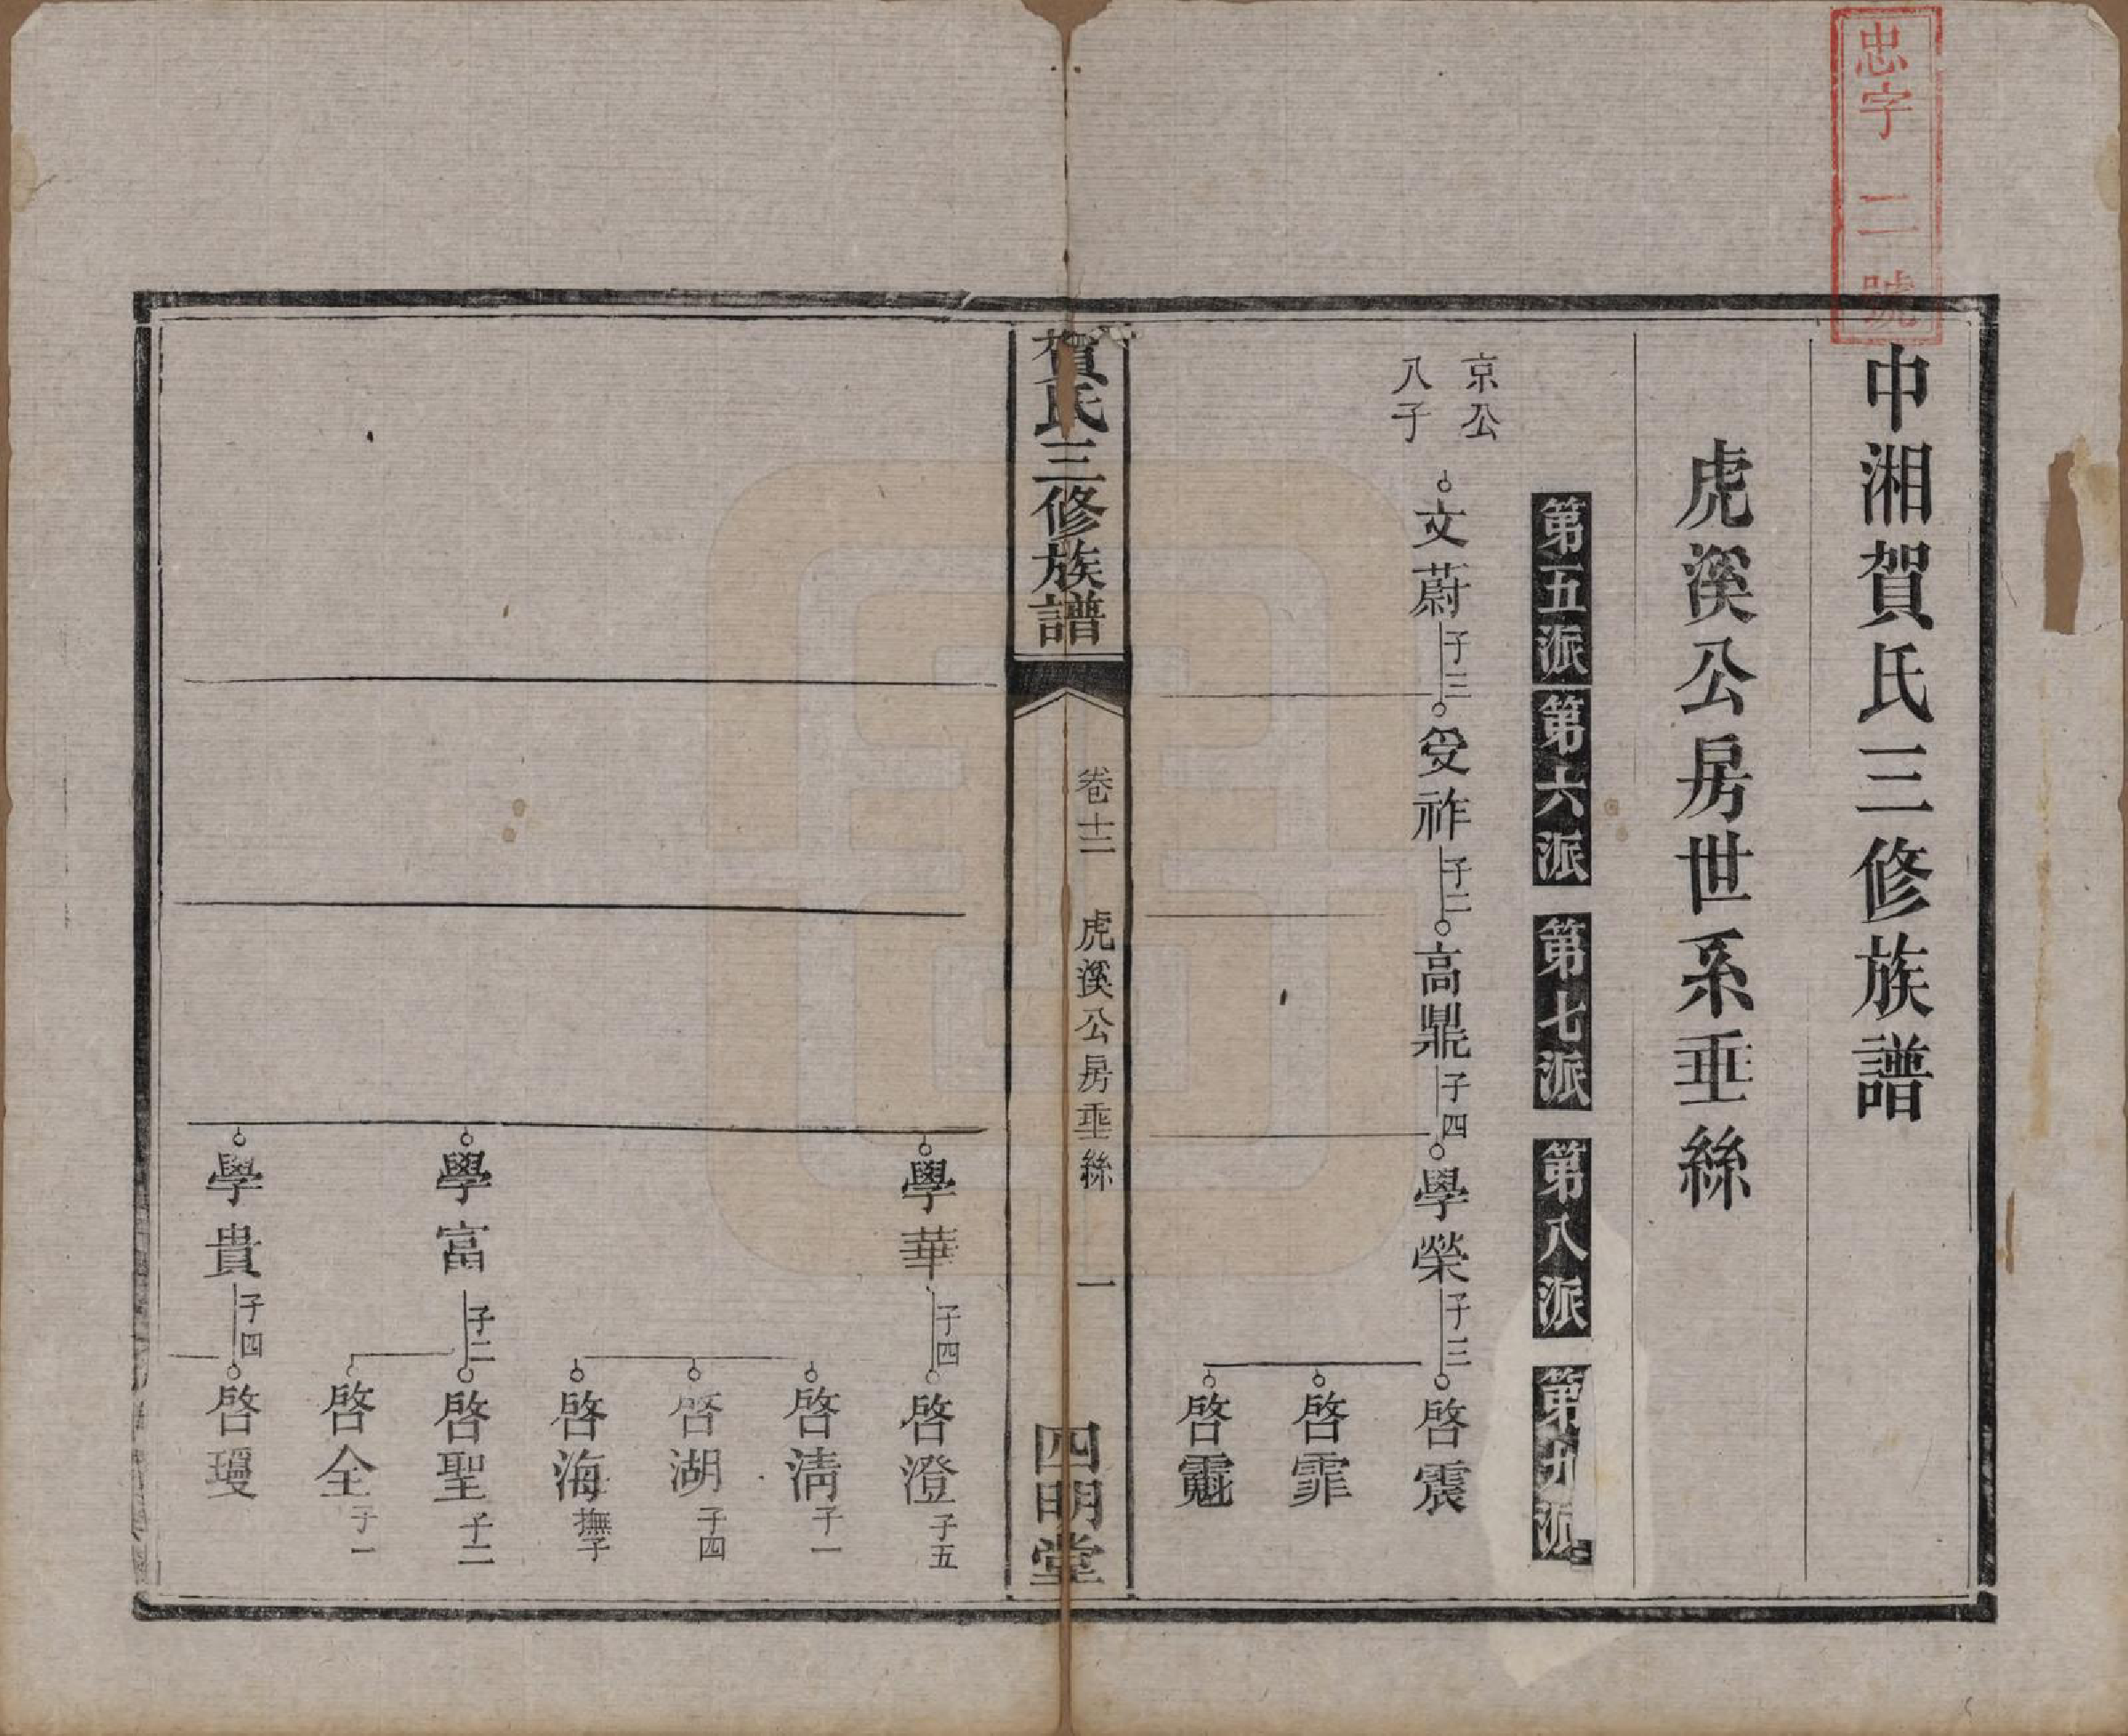 忠字二號
中湘賀氏三修族譜
虎溪公房世系垂絲
第五派
第六派
第七派
第八派
第九派
京公
八子
文蔚 子三
受祚 子二
高鼎 子四
學榮 子三
啓震
啓霏
啓
賀氏三修族譜
卷十二 虎溪公房垂絲 一
四明堂
學華 子四
啓澄 子五
啓淸 子一
啓湖 子四
啓海 撫子
學富 子二
啓聖 子二
啓全 子一
學貴 子四
啓